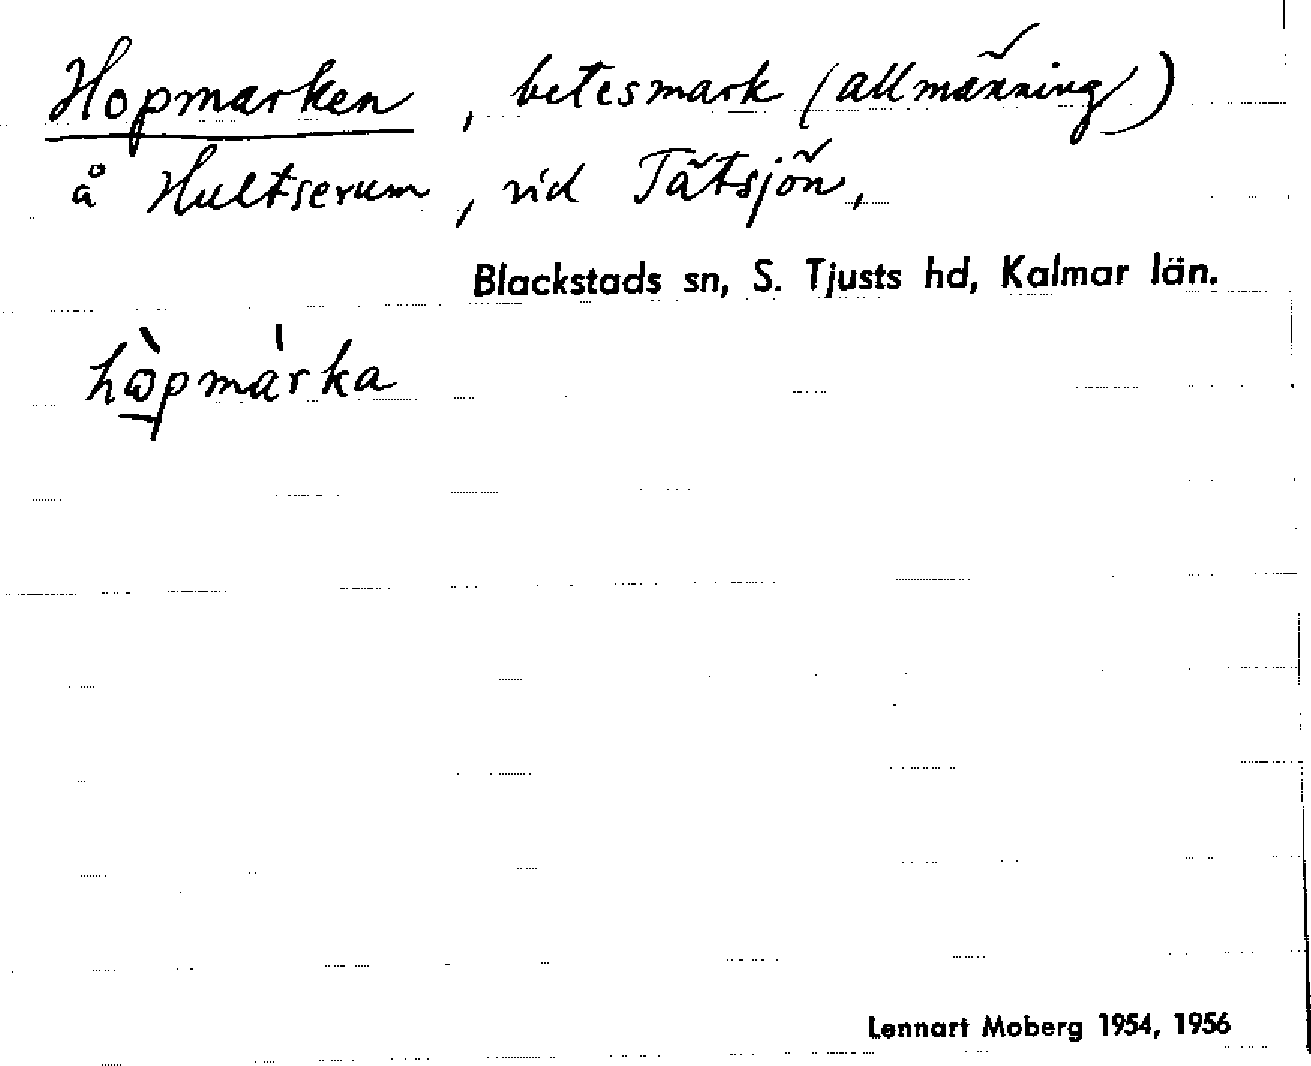 Hopmarken, betesmark (allmänning)
å Hultserum, vid Tätsjön,
Blackstads sn, S. Tjusts hd, Kalmar län.
hòpmàrka
Lennart Moberg 1954, 1956